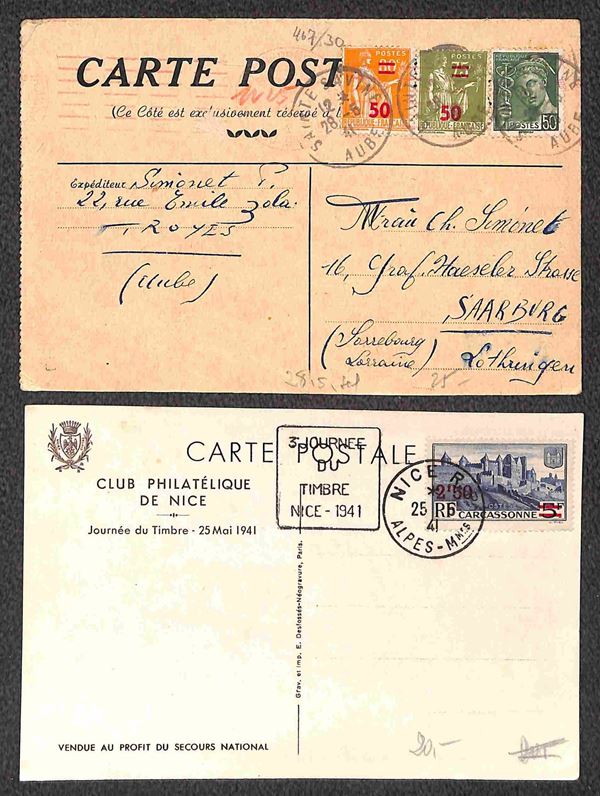 467/30
CARTE POST
(Ce Côté est exclusivement réservé à l
POSTES
80
50
REPUBLIQUE FRANÇAISE
POSTES
75
50
REPUBLIQUE FRANÇAISE
POSTES 50
SAINTE
12
28
AUBE
AUBE
Expéditeur Simonet P.
22, rue Emile Zola
TROYES
(Aube)
Ch. Simonet
16, Graf. Haeseler Strasse
SAARBURG
(Sarrebourg
Lorraine) Lothringen
25-
CARTE POSTALE
CLUB PHILATÉLIQUE
DE NICE
Journée du Timbre - 25 Mai 1941
3 JOURNEE
DU
TIMBRE
NICE - 1941
NICE R.P.
25
41
ALPES-Mmes
2F50
RF
CARCASSONNE
5F
Grav. et Imp. E. Desfossés-Néogravure, Paris.
VENDUE AU PROFIT DU SECOURS NATIONAL
20,-